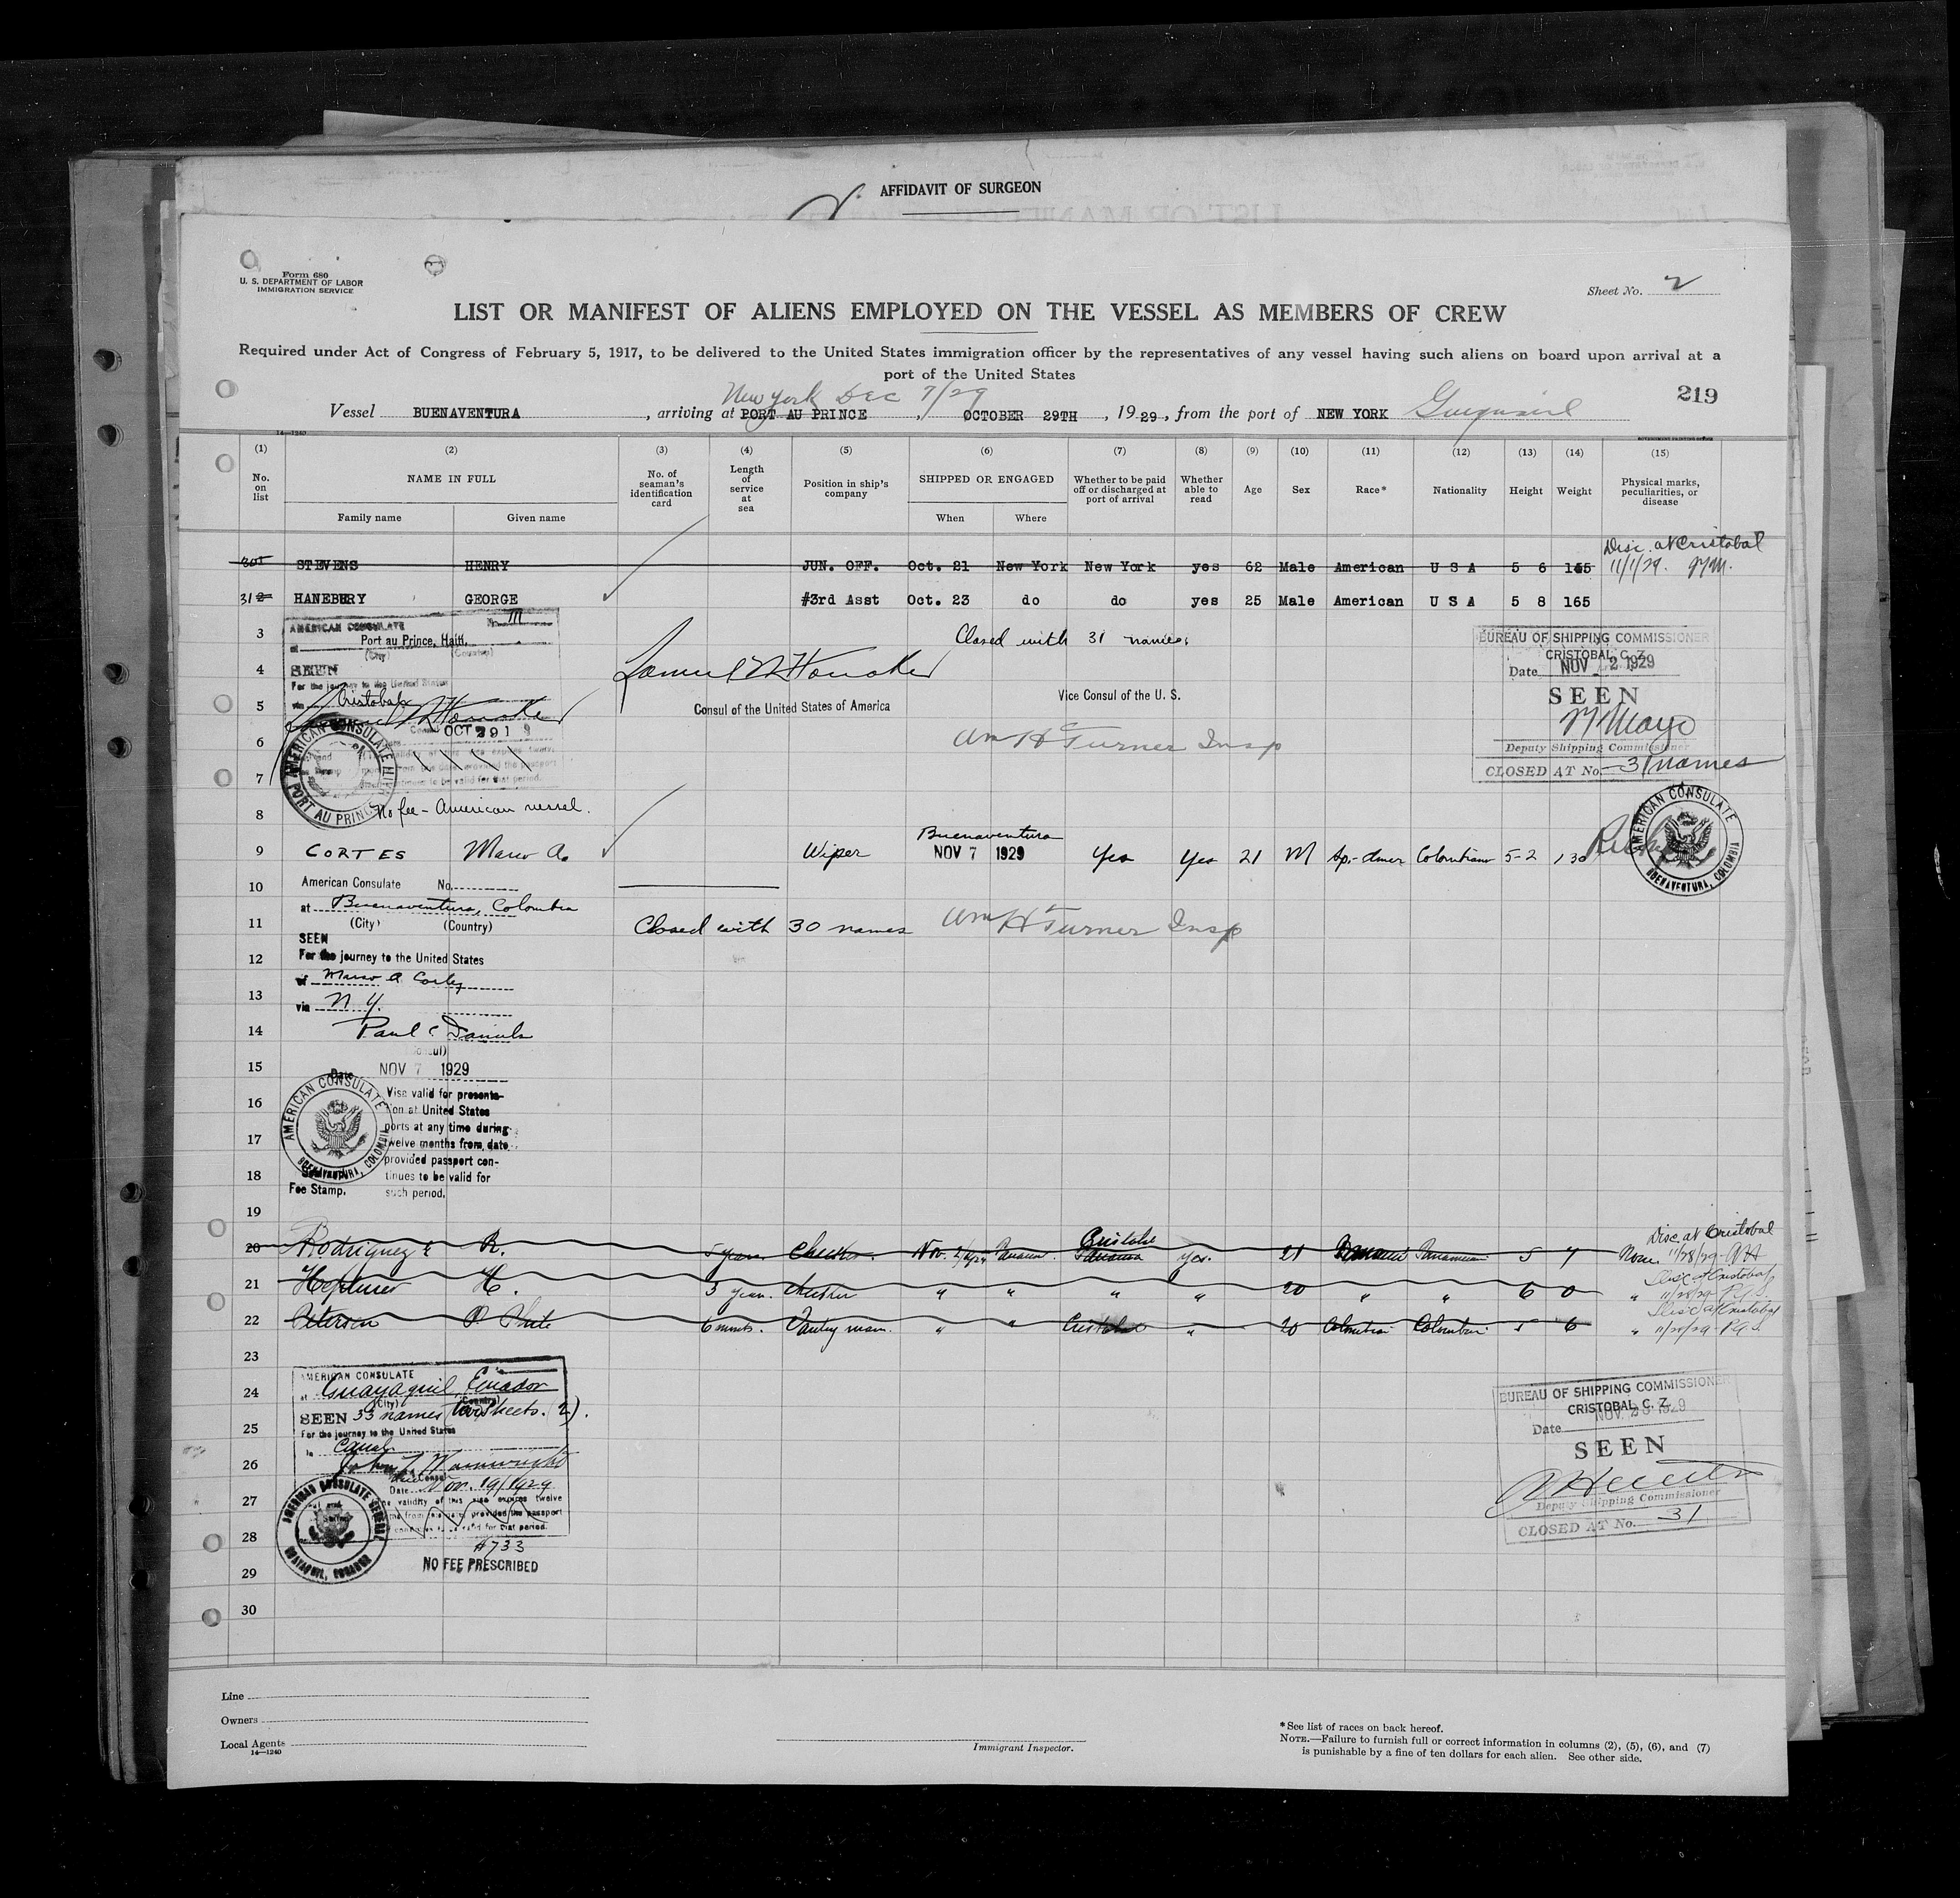 AFFIDAVIT OF SURGEON
Form 680
U. S. DEPARTMENT OF LABOR
IMMIGRATION SERVICE
Sheet No. 2
LIST OR MANIFEST OF ALIENS EMPLOYED ON THE VESSEL AS MEMBERS OF CREW
Required under Act of Congress of February 5, 1917, to be delivered to the United States immigration officer by the representatives of any vessel having such aliens on board upon arrival at a
port of the United States
219
New York Dec 7/29
Vessel BUENAVENTURA, arriving at PORT AU PRINCE, OCTOBER 29TH, 1929, from the port of NEW YORK
14—1240
(1) (2) (3) (4) (5) (6) (7) (8) (9) (10) (11) (12) (13) (14) (15)
No. on list
NAME IN FULL
Family name
Given name
No. of seaman's identification card
Length of service at sea
Position in ship's company
SHIPPED OR ENGAGED
When
Where
Whether to be paid off or discharged at port of arrival
Whether able to read
Age
Sex
Race*
Nationality
Height
Weight
Physical marks, peculiarities, or disease
STEVENS HENRY JUN. OFF. Oct. 21 New York New York yes 62 Male American U S A 5 6 165 Disc. at Cristobal
11/1/29.
31 HANEBURY GEORGE #3rd Asst Oct. 23 do do yes 25 Male American U S A 5 8 165
3
4
5
6
7
8
AMERICAN CONSULATE
at Port au Prince, Haiti.
(City) (Country)
SEEN
For the journey to the United States
via Cristobal
OCT 29 19
AMERICAN CONSULATE
PORT AU PRINCE
No fee - American vessel.
Closed with 31 names
Consul of the United States of America
Vice Consul of the U. S.
Wm H Turner Insp
BUREAU OF SHIPPING COMMISSIONER
CRISTOBAL C. Z.
Date NOV 2 1929
SEEN
Deputy Shipping Commissioner
CLOSED AT No. 31 names
AMERICAN CONSULATE
BUENAVENTURA, COLOMBIA
Buenaventura
9 CORTES Marco A. Wiper NOV 7 1929 Yes Yes 21 M Colombian 5-2 130
10
11
12
13
14
15
16
17
18
19
American Consulate No.
at Buenaventura, Colombia
(City) (Country)
SEEN
For the journey to the United States
of Marco A Cortes
via N. Y.
Paul C Daniels
(Consul)
Date NOV 7 1929
Closed with 30 names Wm H Turner Insp
AMERICAN CONSULATE
BUENAVENTURA, COLOMBIA
Vise valid for presenta-
tion at United States
ports at any time during
twelve months from date
provided passport con-
tinues to be valid for
such period.
Fee Stamp.
20 Rodriguez R. 5 years Checker Nov. Panama Cristobal yes. 21 Panamenian 5 7 None Disc at Cristobal
11/28/29
21 H. 3 years. Checker " " " " 20 " " 6 0 " Disc at Cristobal
11/28/29 P.G.S.
22 Peterson 6 months. Pantry man. " " Cristobal " 20 Colombian Colombian 5 6 " Disc at Cristobal
P.G.S.
23
24
25
26
27
28
29
30
AMERICAN CONSULATE
at Guayaquil, Ecuador
(City) (Country)
SEEN 33 names (two sheets. 2).
For the journey to the United States
Canal
Vice Consul
Date Nov. 19/1929
The validity of this vise expires twelve
months from date provided the passport
continues to be valid for that period.
#733
NO FEE PRESCRIBED
AMERICAN CONSULATE GENERAL
GUAYAQUIL, ECUADOR
BUREAU OF SHIPPING COMMISSIONER
CRISTOBAL C. Z.
Date NOV. 1929
SEEN
Deputy Shipping Commissioner
CLOSED AT No. 31
Line
Owners
Local Agents
14—1240
Immigrant Inspector.
*See list of races on back hereof.
NOTE.—Failure to furnish full or correct information in columns (2), (5), (6), and (7)
is punishable by a fine of ten dollars for each alien. See other side.